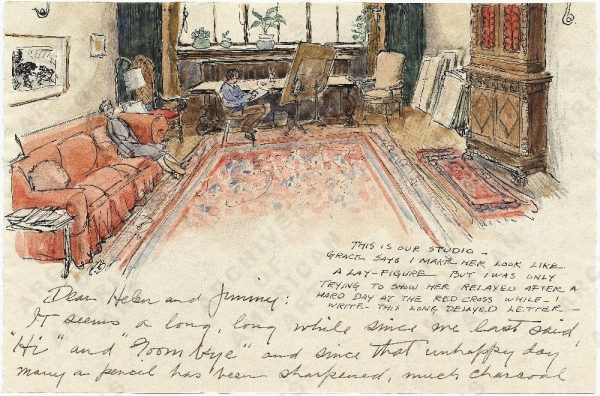 THIS IS OUR STUDIO -
GRACE SAYS I MAKE HER LOOK LIKE
A LAY-FIGURE BUT I WAS ONLY
TRYING TO SHOW HER RELAXED AFTER A
HARD DAY AT THE RED CROSS WHILE - I
WRITE - THIS LONG DELAYED LETTER -
Dear Helen and Jimmy:
It seems a long, long while since we last said
"Hi" and "Goom bye" and since that unhappy day
many a pencil has been sharpened, much charcoal